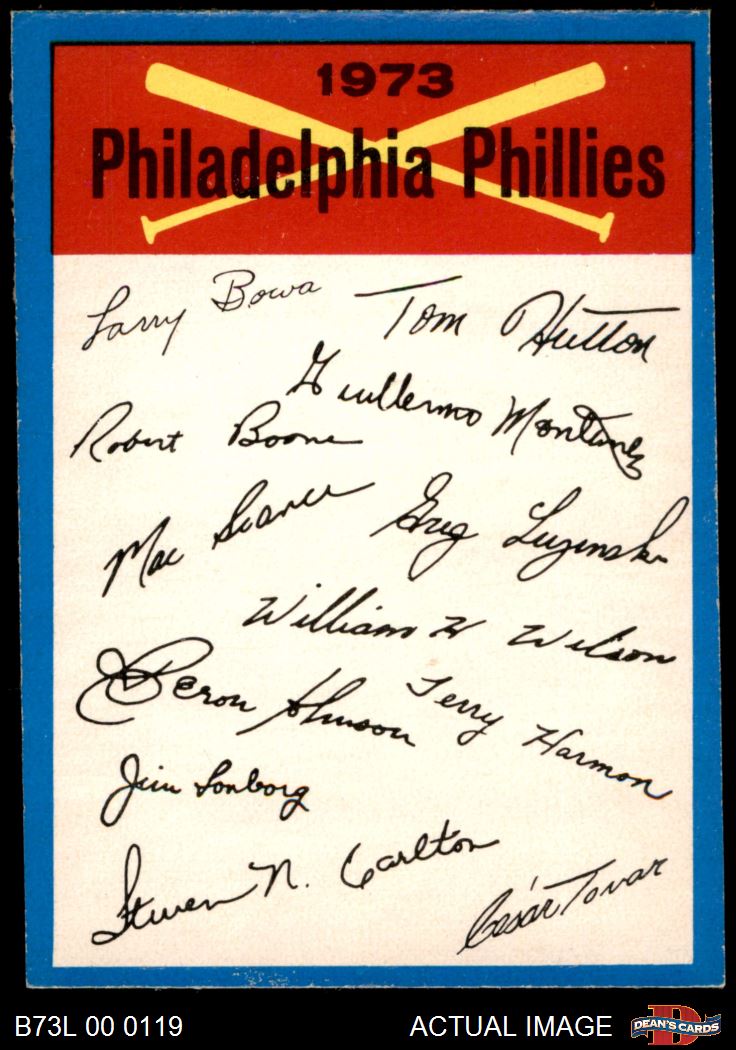 1973
Philadelphia Phillies
Larry Bowa
Tom Hutton
Guillermo Montanez
Robert Boone
Mac Scarce
Greg Luzinski
William H Wilson
Deron Johnson
Terry Harmon
Jim Lonborg
Steven N. Carlton
César Tovar
B73L 00 0119
ACTUAL IMAGE
D
DEAN'S CARDS